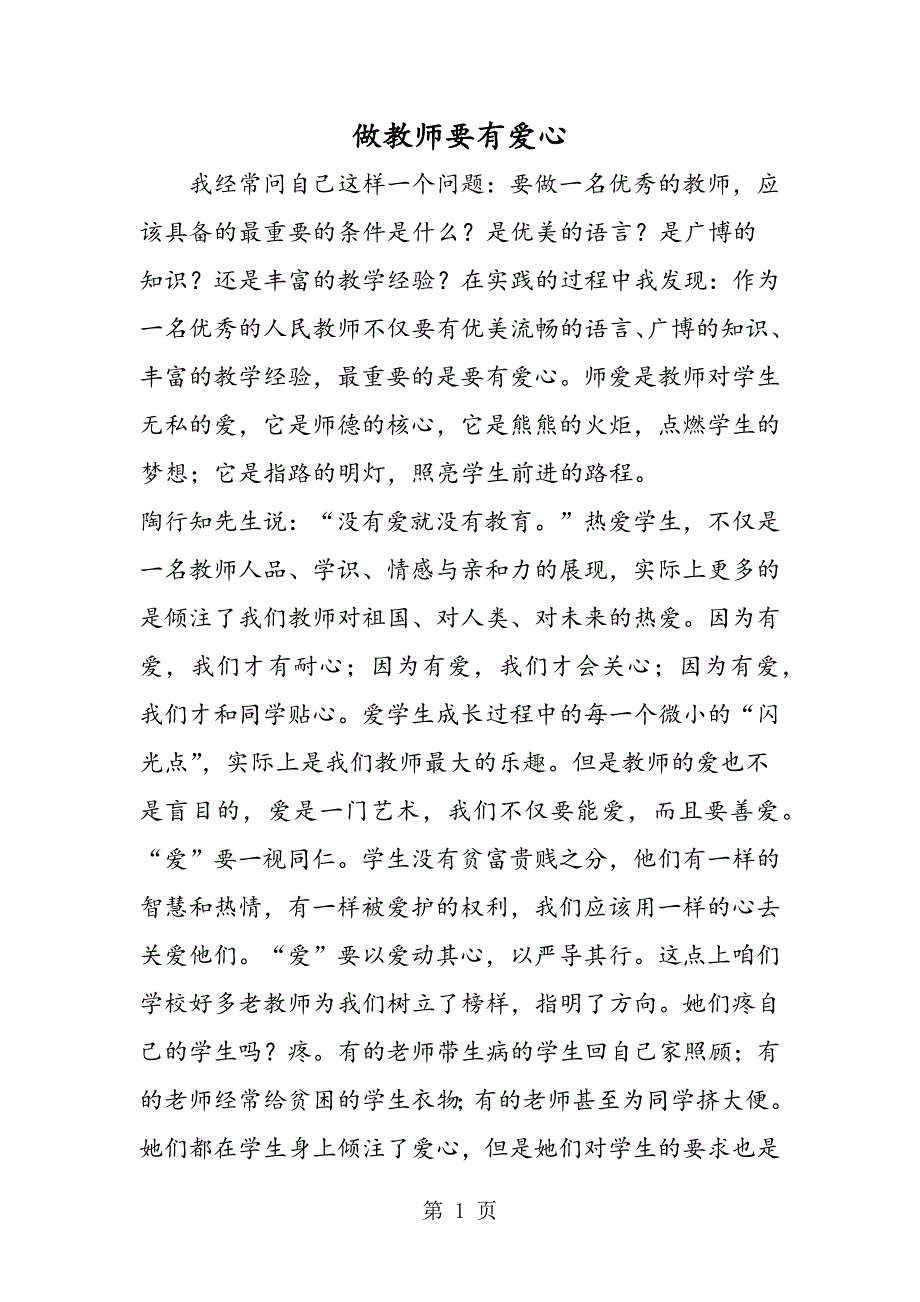 做教师要有爱心
我经常问自己这样一个问题：要做一名优秀的教师，应
该具备的最重要的条件是什么？是优美的语言？是广博的
知识？还是丰富的教学经验？在实践的过程中我发现：作为
一名优秀的人民教师不仅要有优美流畅的语言、广博的知识、
丰富的教学经验，最重要的是要有爱心。师爱是教师对学生
无私的爱，它是师德的核心，它是熊熊的火炬，点燃学生的
梦想；它是指路的明灯，照亮学生前进的路程。
陶行知先生说：“没有爱就没有教育。”热爱学生，不仅是
一名教师人品、学识、情感与亲和力的展现，实际上更多的
是倾注了我们教师对祖国、对人类、对未来的热爱。因为有
爱，我们才有耐心；因为有爱，我们才会关心；因为有爱，
我们才和同学贴心。爱学生成长过程中的每一个微小的“闪
光点”，实际上是我们教师最大的乐趣。但是教师的爱也不
是盲目的，爱是一门艺术，我们不仅要能爱，而且要善爱。
“爱”要一视同仁。学生没有贫富贵贱之分，他们有一样的
智慧和热情，有一样被爱护的权利，我们应该用一样的心去
关爱他们。“爱”要以爱动其心，以严导其行。这点上咱们
学校好多老教师为我们树立了榜样，指明了方向。她们疼自
己的学生吗？疼。有的老师带生病的学生回自己家照顾；有
的老师经常给贫困的学生衣物；有的老师甚至为同学挤大便。
她们都在学生身上倾注了爱心，但是她们对学生的要求也是
第 1 页